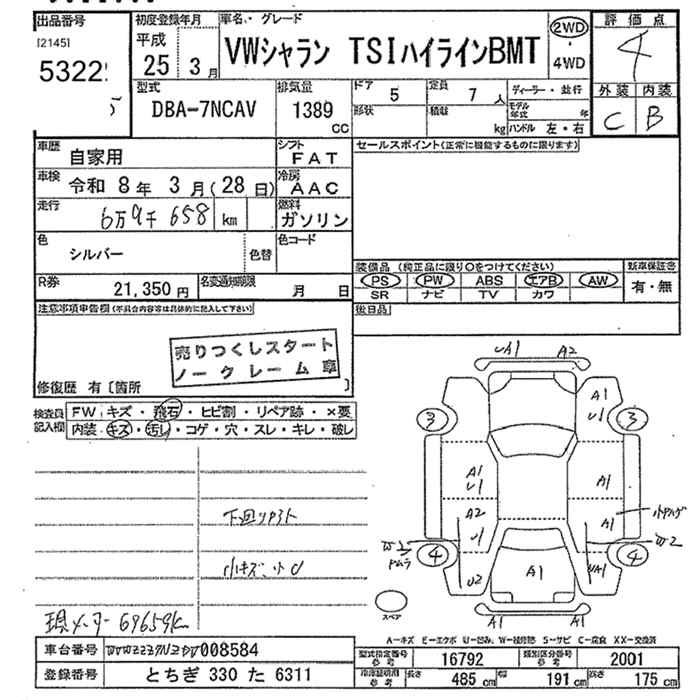 出品番号
[2145]
5322
5
初度登録年月
平成
25 3月
車名・グレード
VWシャラン TSIハイラインBMT
2WD
・
4WD
評価点
4
外装 内装
C B
型式
DBA-7NCAV
排気量
1389
CC
ドア 5
定員 7人
形状
積載 kg
ディーラー・並行
モデル年式 年
ハンドル 左・右
車歴 自家用
シフト FAT
車検 令和 8年 3月(28日)
冷房 AAC
走行 6万9千658 km
燃料 ガソリン
色 シルバー
色替
色コード
R券 21,350円
名変通知期限 月 日
セールスポイント(正常に機能するものに限ります)
装備品 (純正品に限り○をつけてください)
新車保証書
PS PW ABS エアB AW
SR ナビ TV カワ
有・無
後日品
注意事項申告欄(不具合内容等は具体的に記入して下さい)
売りつくしスタート
ノークレーム車
修復歴 有〔箇所 〕
検査員記入欄
FW キズ・飛石・ヒビ割・リペア跡・×要
内装 キズ・汚レ・コゲ・穴・スレ・キレ・破レ
小キズ、小U
現メーター 69659k
UA1 A2
A1
U1
3 3
A1
U1
A1
A2
A1
U1
小ハゲ
W2
4 4
ムラ
U2
A1
UA1
スペア
A1 A1
A－キズ E－エクボ U－凹み W－補修跡 S－サビ C－腐食 XX－交換済
車台番号 008584
登録番号 とちぎ 330 た 6311
型式指定番号 参考 16792
類別区分番号 参考 2001
車庫証明用 参考
長さ 485 cm
幅 191 cm
高さ 175 cm